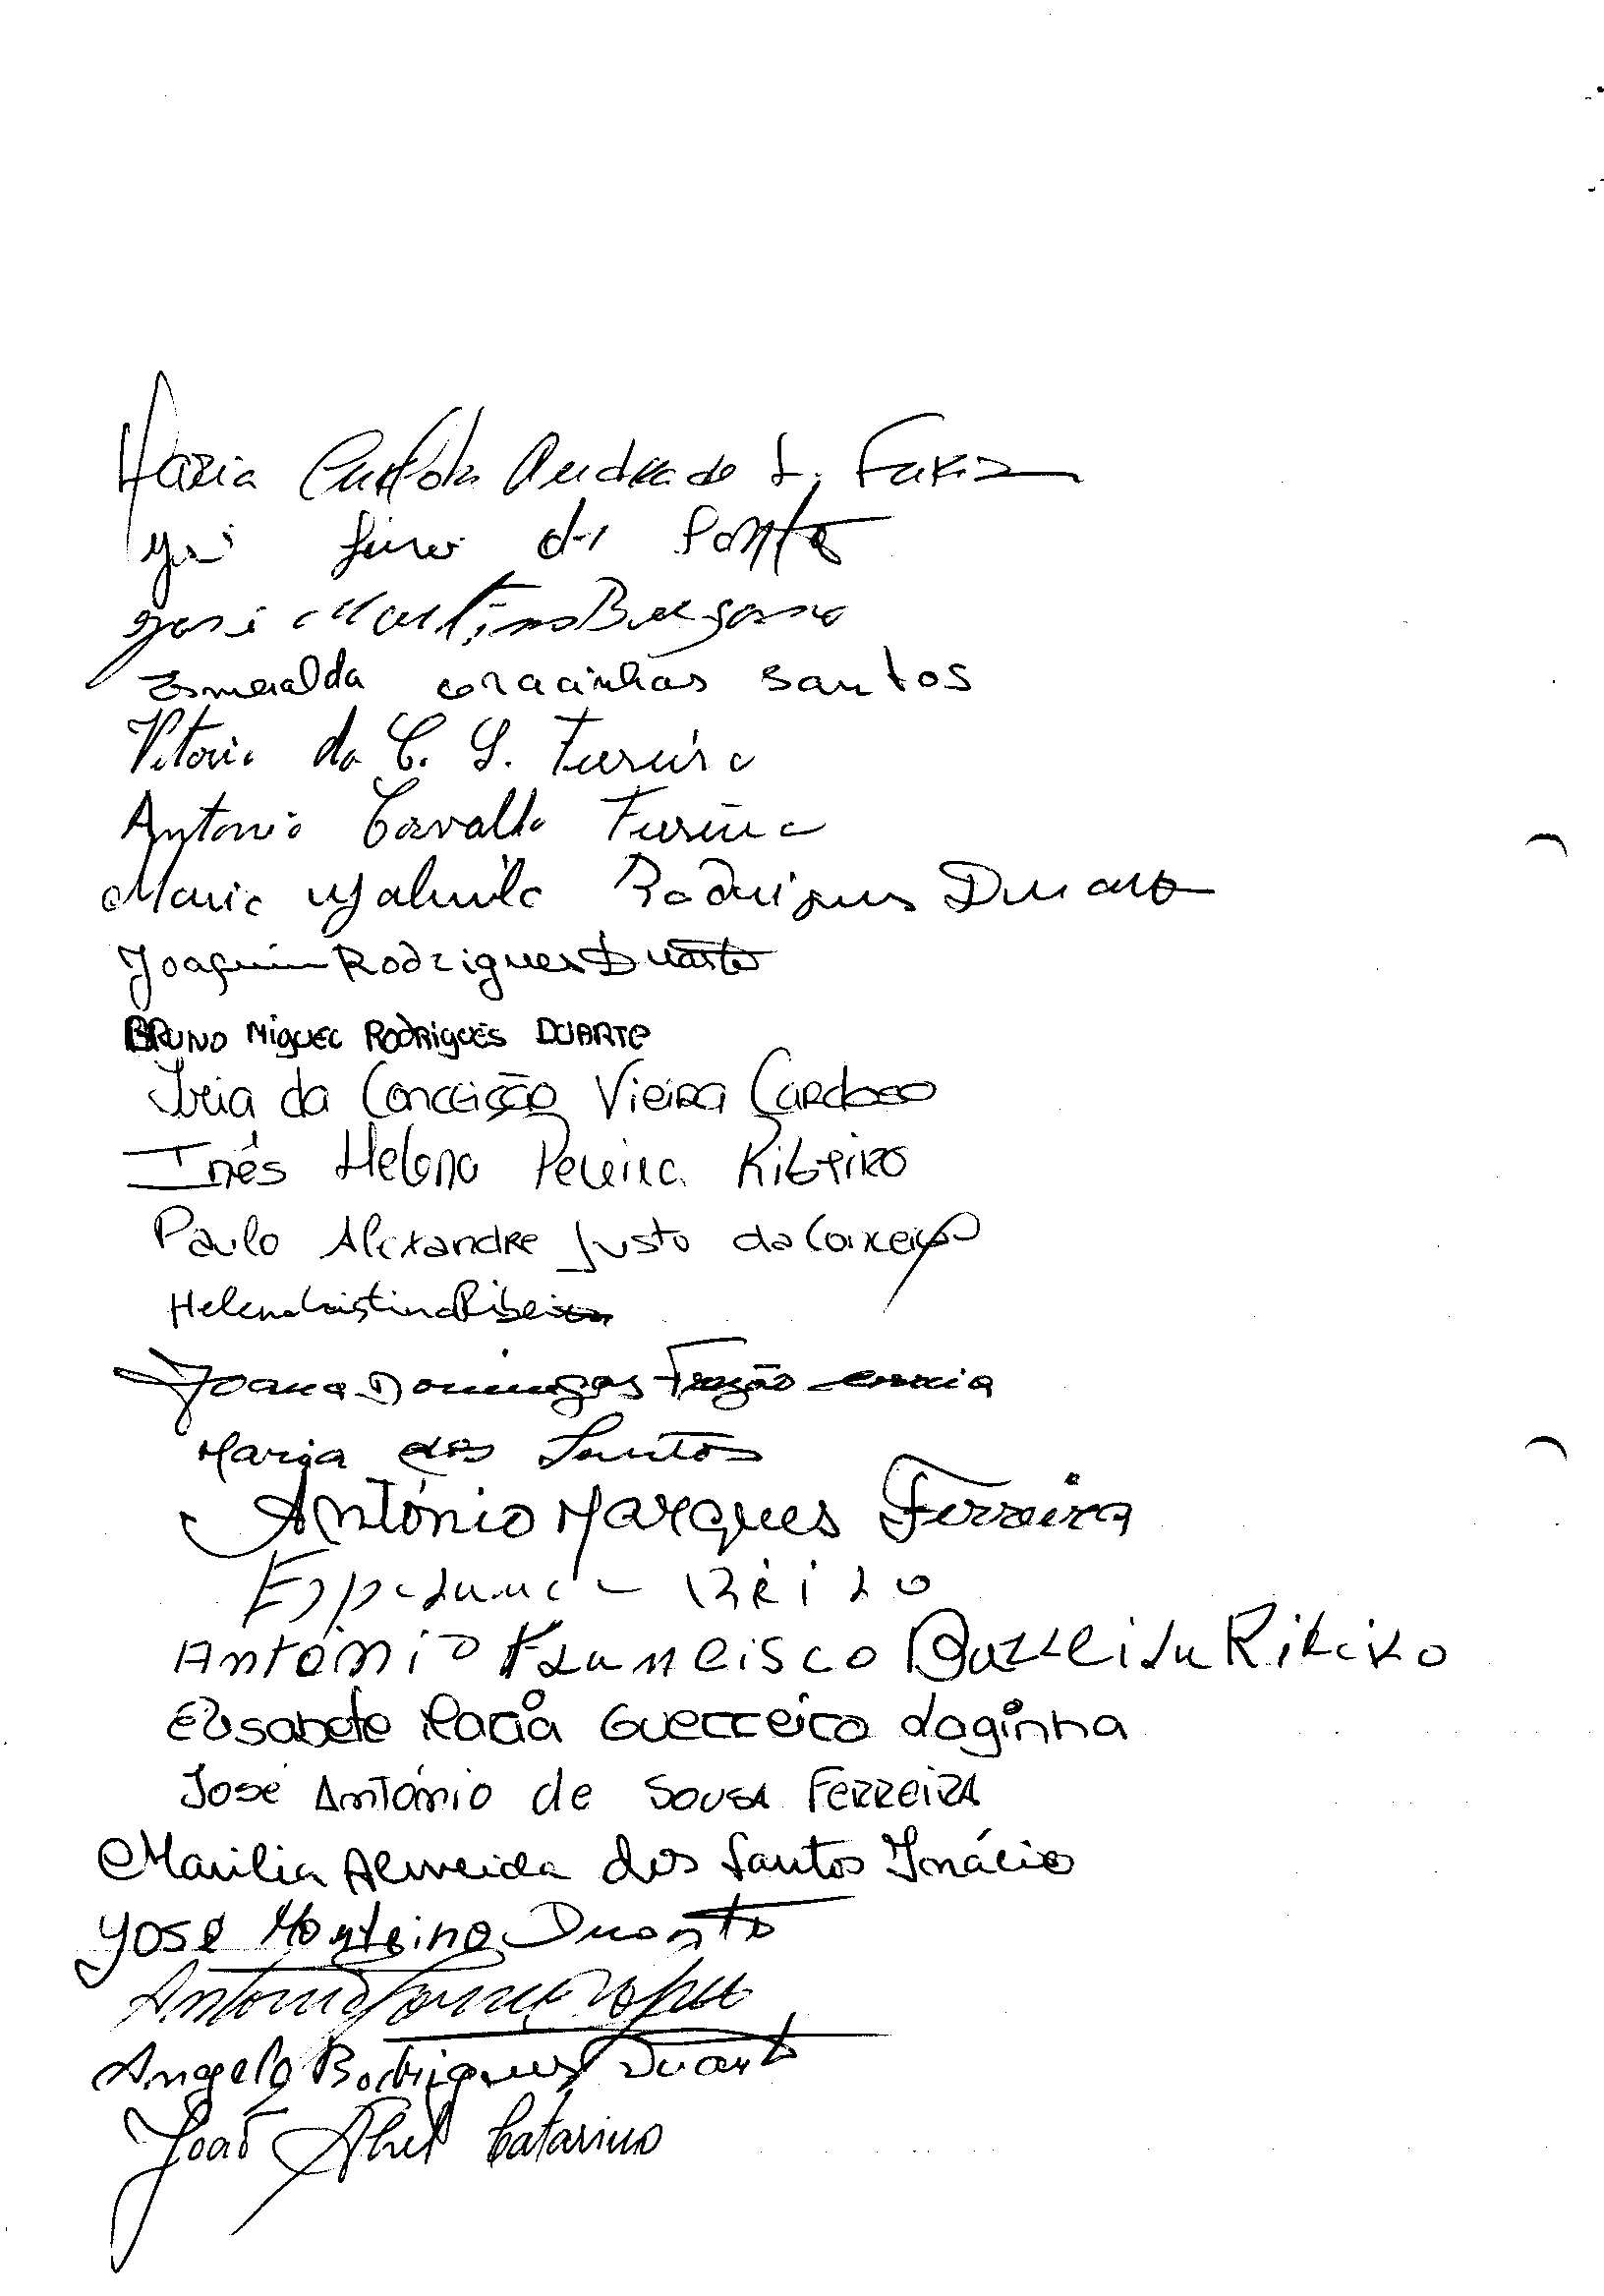 Maria Andrade L. Faria
da
José Martins
Esmeralda coracinhas santos
Vitoria da C. S. Ferreira
Antonio Carvalho Ferreira
Maria Rodrigues Duarte
Joaquim Rodrigues Duarte
BRUNO MiguEL RODRiguES DUARTE
da Conceição Vieira Cardoso
Inês Helena Pereira Ribeiro
Paulo Alexandre Justo da Conceição
Helena Cristina Ribeiro
Joana Domingas Frazão correia
Maria dos Santos
António Marques Ferreira
António Francisco Ribeiro
Elisabete Maria Guerreiro daginha
José António de Sousa FERREIRA
Marilia Almeida dos Santos Inácio
José Monteiro Duarte
Lopes
Angelo Rodrigues Duarte
João Abel Catarino